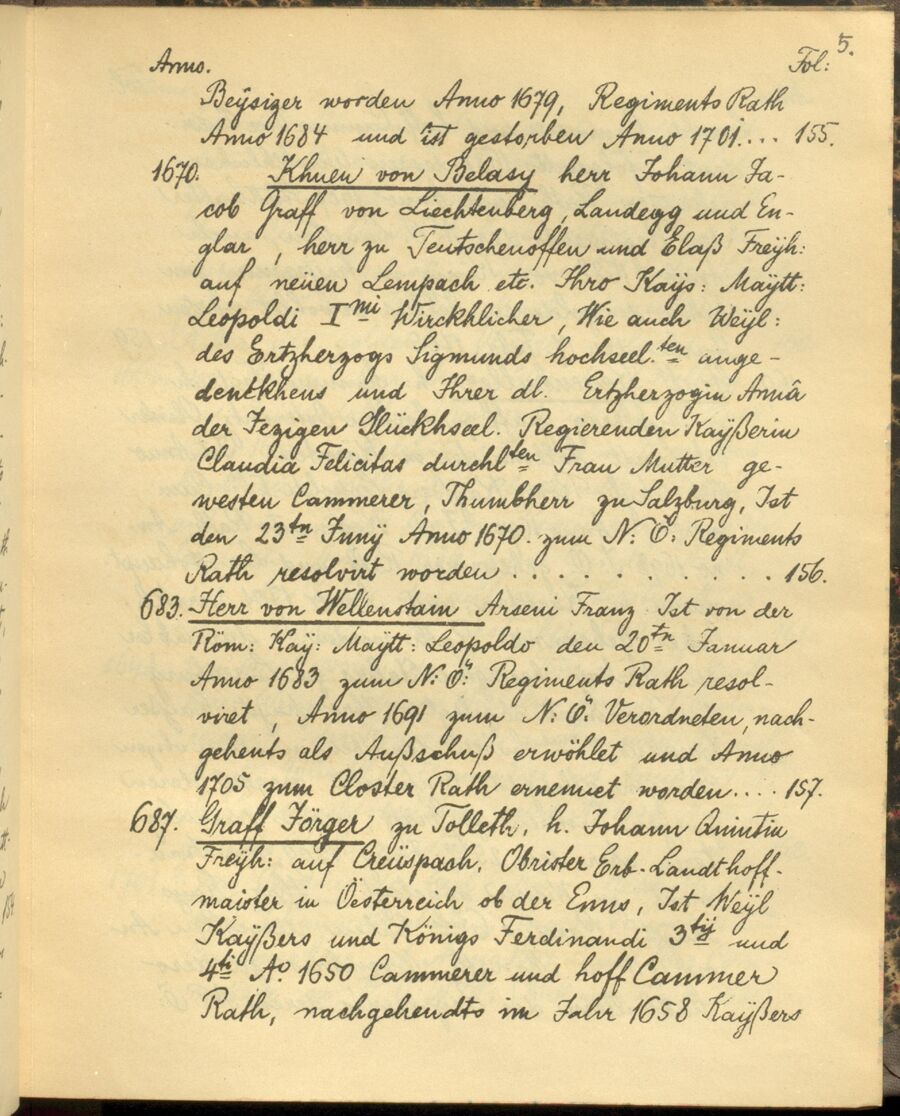 5.
Anno. Fol:
Beÿsizer worden Anno 1679, Regiments Rath
Anno 1684 und ist gestorben Anno 1701.... 155.
1670. Khuen von Belasy herr Johann Ja-
cob Graff von Liechtenberg, Landegg und En-
glar, herr zu Teutschenoffen und Elaß Freÿh:
auf neüen Lempach etc. Ihro Kaÿs: Maÿtt:
Leopoldi I mi Wirckhlicher, Wie auch Weÿl:
des Ertzherzogs Sigmunds hochseel. ten ange-
denckhens und Ihrer dl. Ertzherzogin Annâ
der Jezigen Glückhseel. Regierenden Kaÿßerin
Claudia Felicitas durchl ten Frau Mutter ge-
westen Cammerer, Thumbherr zu Salzburg, Ist
den 23 tn Junÿ Anno 1670. zum N: Ö: Regiments
Rath resolvirt worden . . . . . . . . . . . . 156.
683. Herr von Wellenstain Arseni Franz Ist von der
Röm: Kaÿ: Maÿtt: Leopoldo den 20 tn Januar
Anno 1683 zum N: Ö: Regiments Rath resol-
viret, Anno 1691 zum N: Ö: Verordneten, nach-
gehents als Außschuß erwöhlet und Anno
1705 zum Closter Rath ernennet worden.... 157.
687. Graff Jörger zu Tolleth, h. Johann Quintin
Freÿh: auf Creüspach, Obrister Erb-Landthoff-
maister in Öesterreich ob der Enns, Ist Weÿl
Kaÿßers und Königs Ferdinandi 3 tij und
4 ti Ao. 1650 Cammerer und hoff Cammer
Rath, nachgehendts im Jahr 1658 Kaÿßers